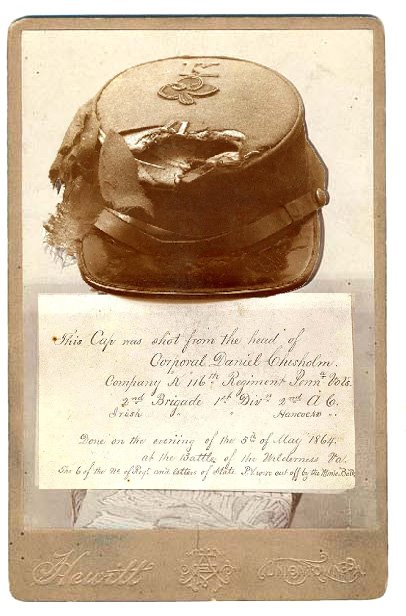 K
This Cap was shot from the head of
Corporal Daniel Chisholm.
Company K 116th Regiment Penna Vols.
2nd Brigade 1st Divn 2nd A C.
Irish " " Hancocks "
Done on the evening of the 5th of May 1864.
at the Battle of the Wilderness Va.
The 6 of the No of Regt. and letters of State Pa were cut off by the Minie Ball
Hewitt
UNIONTOWN PA.